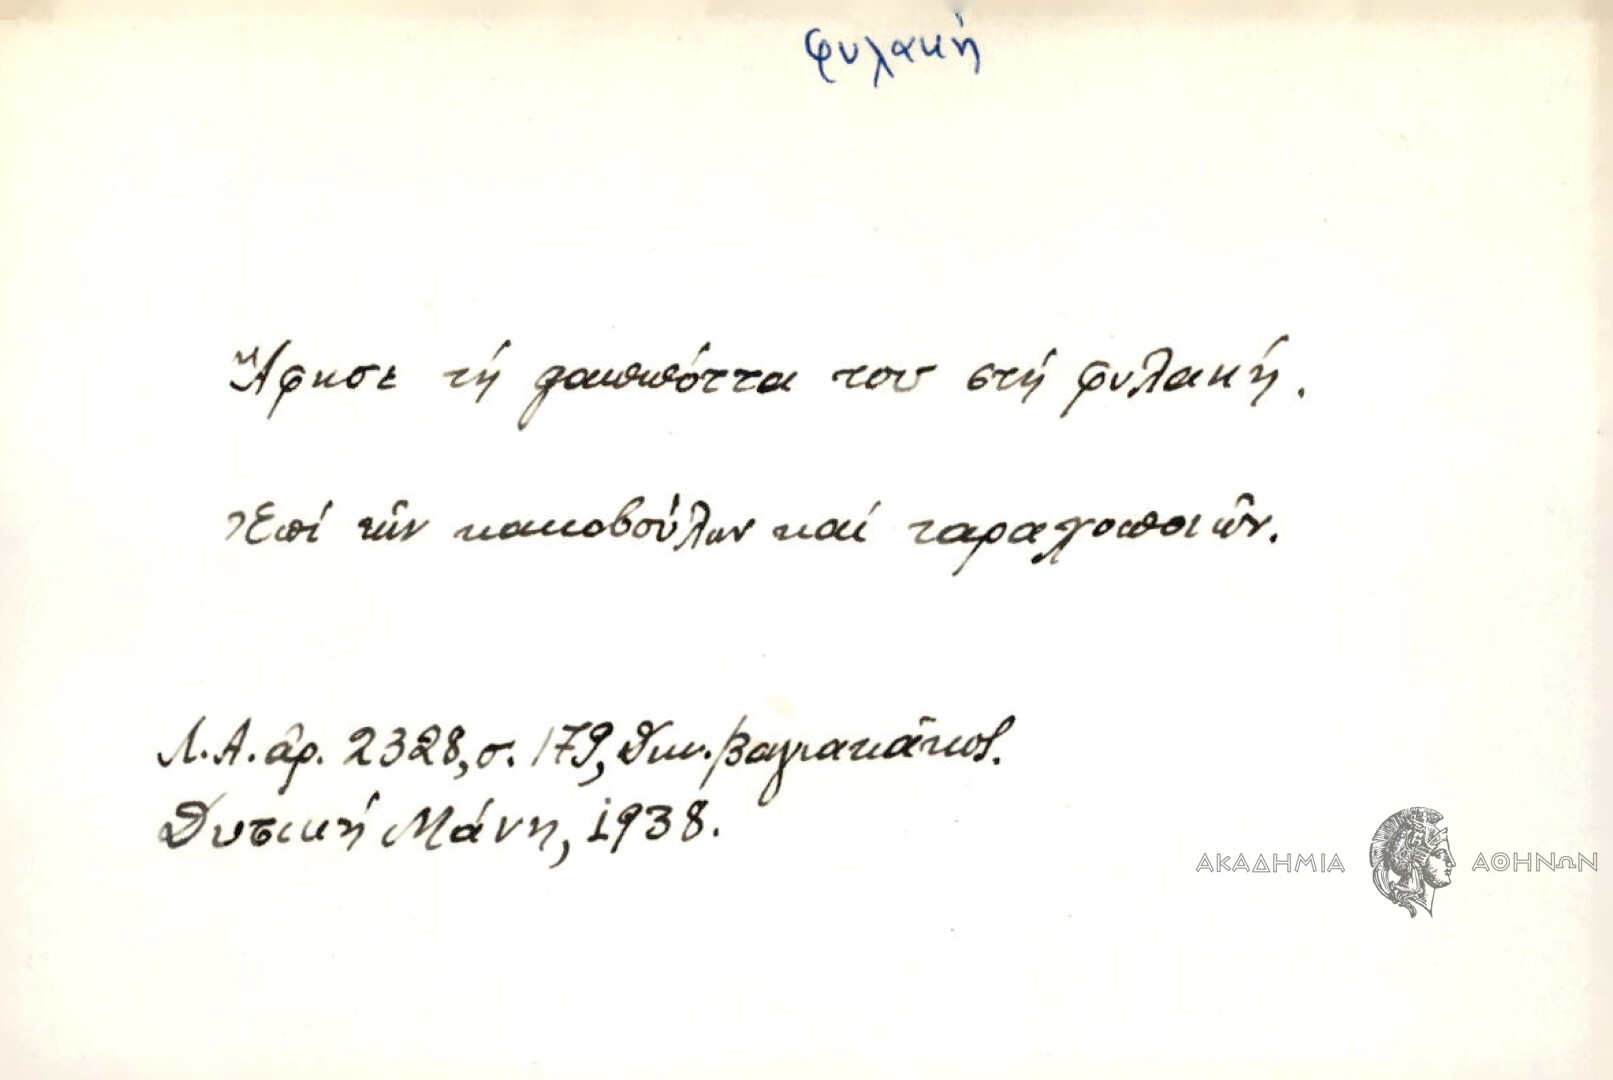 φυλακή
Ἄφησε τή γαμπότττα του στή φυλακή.
Ἐπί τῶν κακοβούλων καί ταραχοποιῶν.
Λ.Α. ἀρ. 2328, σ. 179, Δικ. Βαγιακάκος.
Δυτική Μάνη, 1938.
ΑΚΑΔΗΜΙΑ ΑΘΗΝΩΝ